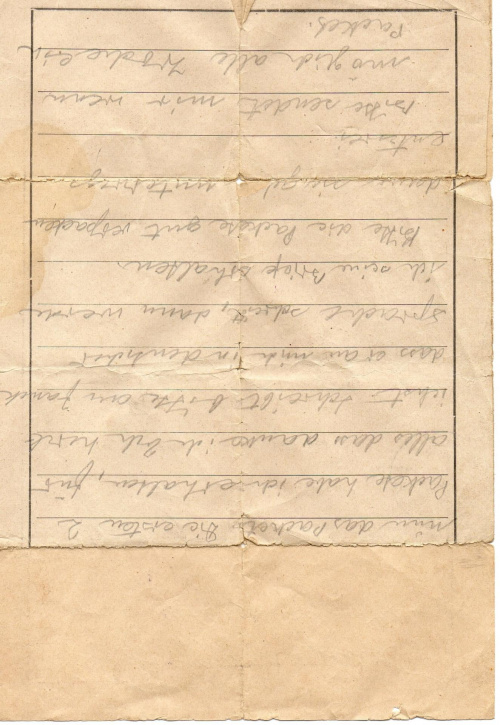 das Packet. Die ersten 2
Packete habe ich erhalten, für
alles das danke ich Euch herz
ichst. Schreibt bitte an Janek
dass er an mich in deutscher
sprache schreibt, dann werde
ich seine Brief erhalten.
Bitte die Packete gut verpacken
unterwegs
entzwei
Bitte sendet mir wenn
möglich alle Woche ein
Packet.